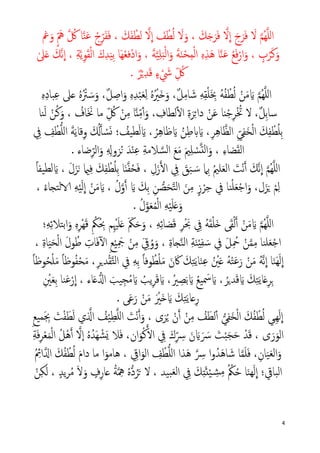 اللَّهُمَّ لَا فَرَجَ إِلَّا فَرَجَكَ ، وَلَا لُطْفَ إِلَّا لُطْفَكَ ، فَفَرِّجْ عَنَّا كُلَّ هَمٍّ وَغَمٍّ
وَكَرْبٍ ، وَارْفَعْ عَنَّا هَذِهِ الْمِحْنَةَ وَالْبَلِيَّةَ ، وَادْفَعْهَا بِيَدِكَ الْقَوِيَّةِ ، إِنَّكَ عَلَىٰ
كُلِّ شَيْءٍ قَدِيرٌ .
اللَّهُمَّ يَامَنْ لُطْفُهُ بِخَلْقِهِ شَامِلٌ ، وَخَيْرُهُ لِعَبْدِهِ وَاصِلٌ ، وَسَتْرُهُ على عِبادِهِ
سابِلٌ ، لا تُخْرِجْنا عَنْ دائِرَةِ الألطافِ ، وَآمِنَّا مِنْ كُلِّ ما نَخَافُ ، وَكُنْ لَنا
بِلُطْفِكَ الْخَفِيِّ الظَّاهِرِ ، يَاباطِنُ يَاظاهِرُ ، يَالَطيفُ ؛ نَسْأَلُكَ وِقايَةَ اللُّطْفِ فِي
القَضَاءِ ، وَالتَّسْلِيْمَ مَعَ السَّلامةِ عَنْدَ نُزولِهِ وَالرِّضاءِ .
اللَّهُمَّ إِنَّكَ أَنْتَ العَليمُ بِمَا سَبَقَ في الأَزَلِ ، فَحُفَّنَا بِلُطْفِكَ فِيما نَزَلَ ، يَالطيفاً
لَمْ يَزَل، وَاجْعَلْنا فِي حِرْزٍ مِنَ التَّحَصُّنِ بِكَ يَا أَوَّلُ ، يَامَنْ إِلَيْهِ الالتجاءُ ،
وَعَلَيْهِ الْمُعَوَّلُ .
اللَّهُمَّ يَامَنْ أَلْقَى خَلْقَهُ فِي بَحْرِ قضائِهِ ، وَحَكَمَ عَلَيْهِم بِحُكْمِ قَهْرِهِ وَابتلائِهِ؛
اجعَلنا مِمَّنْ حُمِلَ في سَفِيْنَةِ النَّجاةِ ، وَوُقِيَ مِنْ جَمِيْعِ الآفاتِ طُولَ الْحَيَاةِ ،
إِلَهَنا إِنَّهُ مَنْ رَعَتْهُ عَيْنُ عِنَايَتِكَ كَانَ مَلْطُوفاً بِهِ فِي التَّقْديرِ ، مَحْفوظاً مَلْحُوظاً
بِرِعَايَتِكَ يَاقَديرُ، يَاسَمِيعُ يَابَصِيْرُ، يَاقَرِيبُ يَامُجِيبَ الدُّعَاءِ ، اِرْعَنا بِعَيْنِ
رِعايَتِكَ يَاخَيْرَ مَنْ رَعَى .
إِلَهِي لُطْفُكَ الْخَفِيُّ أَلطَفُ مِنْ أَنْ يُرَى ، وَأَنْتَ اللَّطِيْفُ الَّذي لَطَفْتَ بِجَميعِ
الوَرَى ، قَدْ حَجَبْتَ سَرَيَانَ سِرِّكَ فِي الأَكْوانِ، فَلا يَشْهَدُهُ إِلَّا أَهْلُ الْمَعْرِفَةِ
وَالعَيَانِ، فَلَمَّا شاهَدُوا سِرَّ هَذا اللُّطْفِ الوَاقِي ، هامُوا ما دامَ لُطْفُكَ الدَّائِمُ
الباقِي؛ إِلَهَنا حُكْمُ مَشِيْئَتِكَ في العَبِيدِ ، لا تَرُدُّهُ هِمَّةُ عارِفٍ وَلاَ مُريدٍ ، لَكِنْ
4